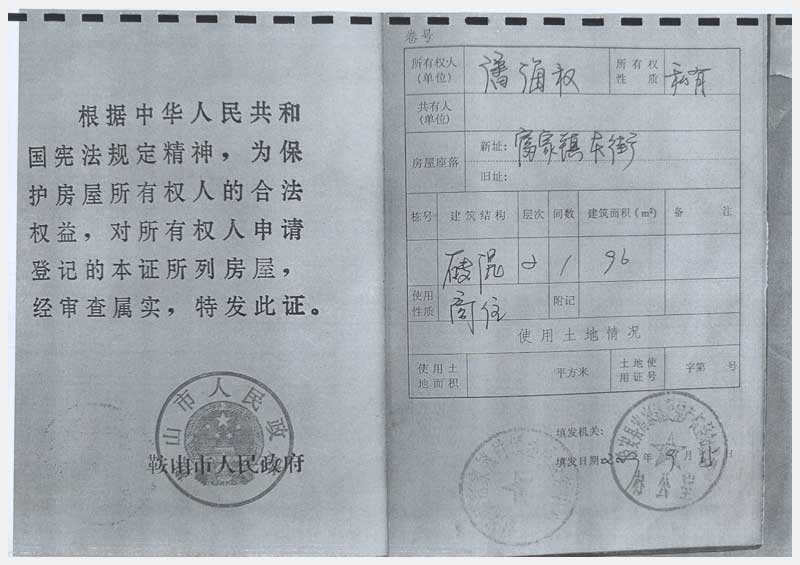 根据中华人民共和
国宪法规定精神，为保
护房屋所有权人的合法
权益，对所有权人申请
登记的本证所列房屋，
经审查属实，特发此证。
鞍山市人民政府
鞍山市人民政府
卷号
所有权人(单位) 潘海权 所有权性质 私有
共有人(单位)
房屋座落 新址： 富家镇东街
旧址：
栋号 建筑结构 层次 间数 建筑面积（m²） 备 注
砖混 2 1 96
使用性质 商住 附记
使用土地情况
使用土地面积 平方米 土地使用证号 字第 号
填发机关：
填发日期 年 9月 日